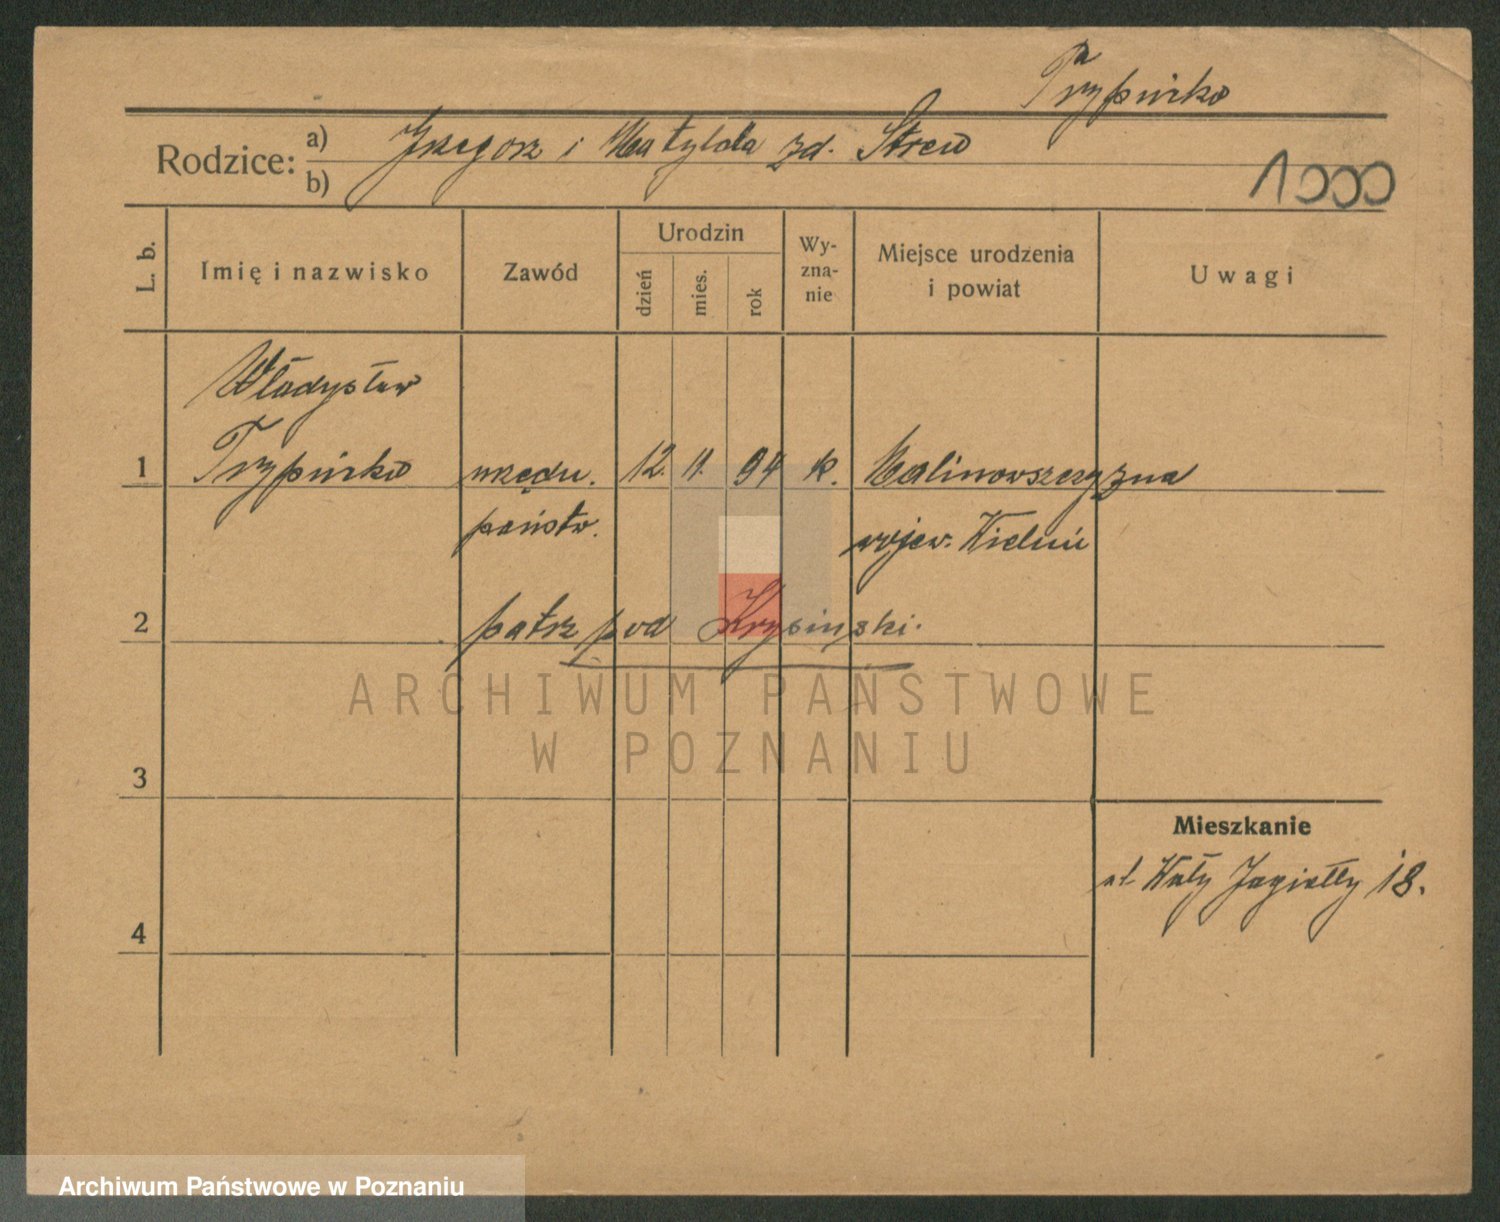 Trypućko
Rodzice: a) Grzegorz i Matylda zd. Strew
b)
1000
L. b.
Imię i nazwisko
Zawód
Urodzin
dzień
mies.
rok
Wy-
zna-
nie
Miejsce urodzenia
i powiat
Uwagi
Władysław
1 Trypućko urzędn. 12. 11. 94 k. Malinowszczyzna
państw. wojew.
2 patrz pod Krysinski.
ARCHIWUM PAŃSTWOWE
W POZNANIU
3
Mieszkanie
ul. Wały Jagiełły 18.
4
Archiwum Państwowe w Poznaniu